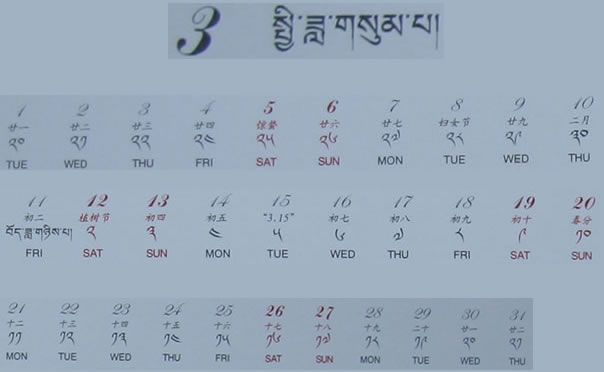 3 སྤྱི་ཟླ་གསུམ་པ།
1 2 3 4 5 6 7 8 9 10
廿一 廿二 廿三 廿四 惊蛰 廿六 廿七 妇女节 廿九 二月
༢༠ ༢༡ ༢༢ ༢༤ ༢༥ ༢༦ ༢༧ ༢༨ ༢༩ ༣༠
TUE WED THU FRI SAT SUN MON TUE WED THU
11 12 13 14 15 16 17 18 19 20
初二 植树节 初四 初五 "3.15" 初七 初八 初九 初十 春分
བོད་ཟླ་གཉིས་པ། ༢ ༣ ༤ ༥ ༦ ༧ ༨ ༩ ༡༠
FRI SAT SUN MON TUE WED THU FRI SAT SUN
21 22 23 24 25 26 27 28 29 30 31
十二 十三 十四 十五 十六 十七 十八 十九 二十 廿一 廿二
༡༡ ༡༢ ༡༣ ༡༤ ༡༥ ༡༦ ༡༧ ༡༨ ༡༩ ༢༠ ༢༡
MON TUE WED THU FRI SAT SUN MON TUE WED THU